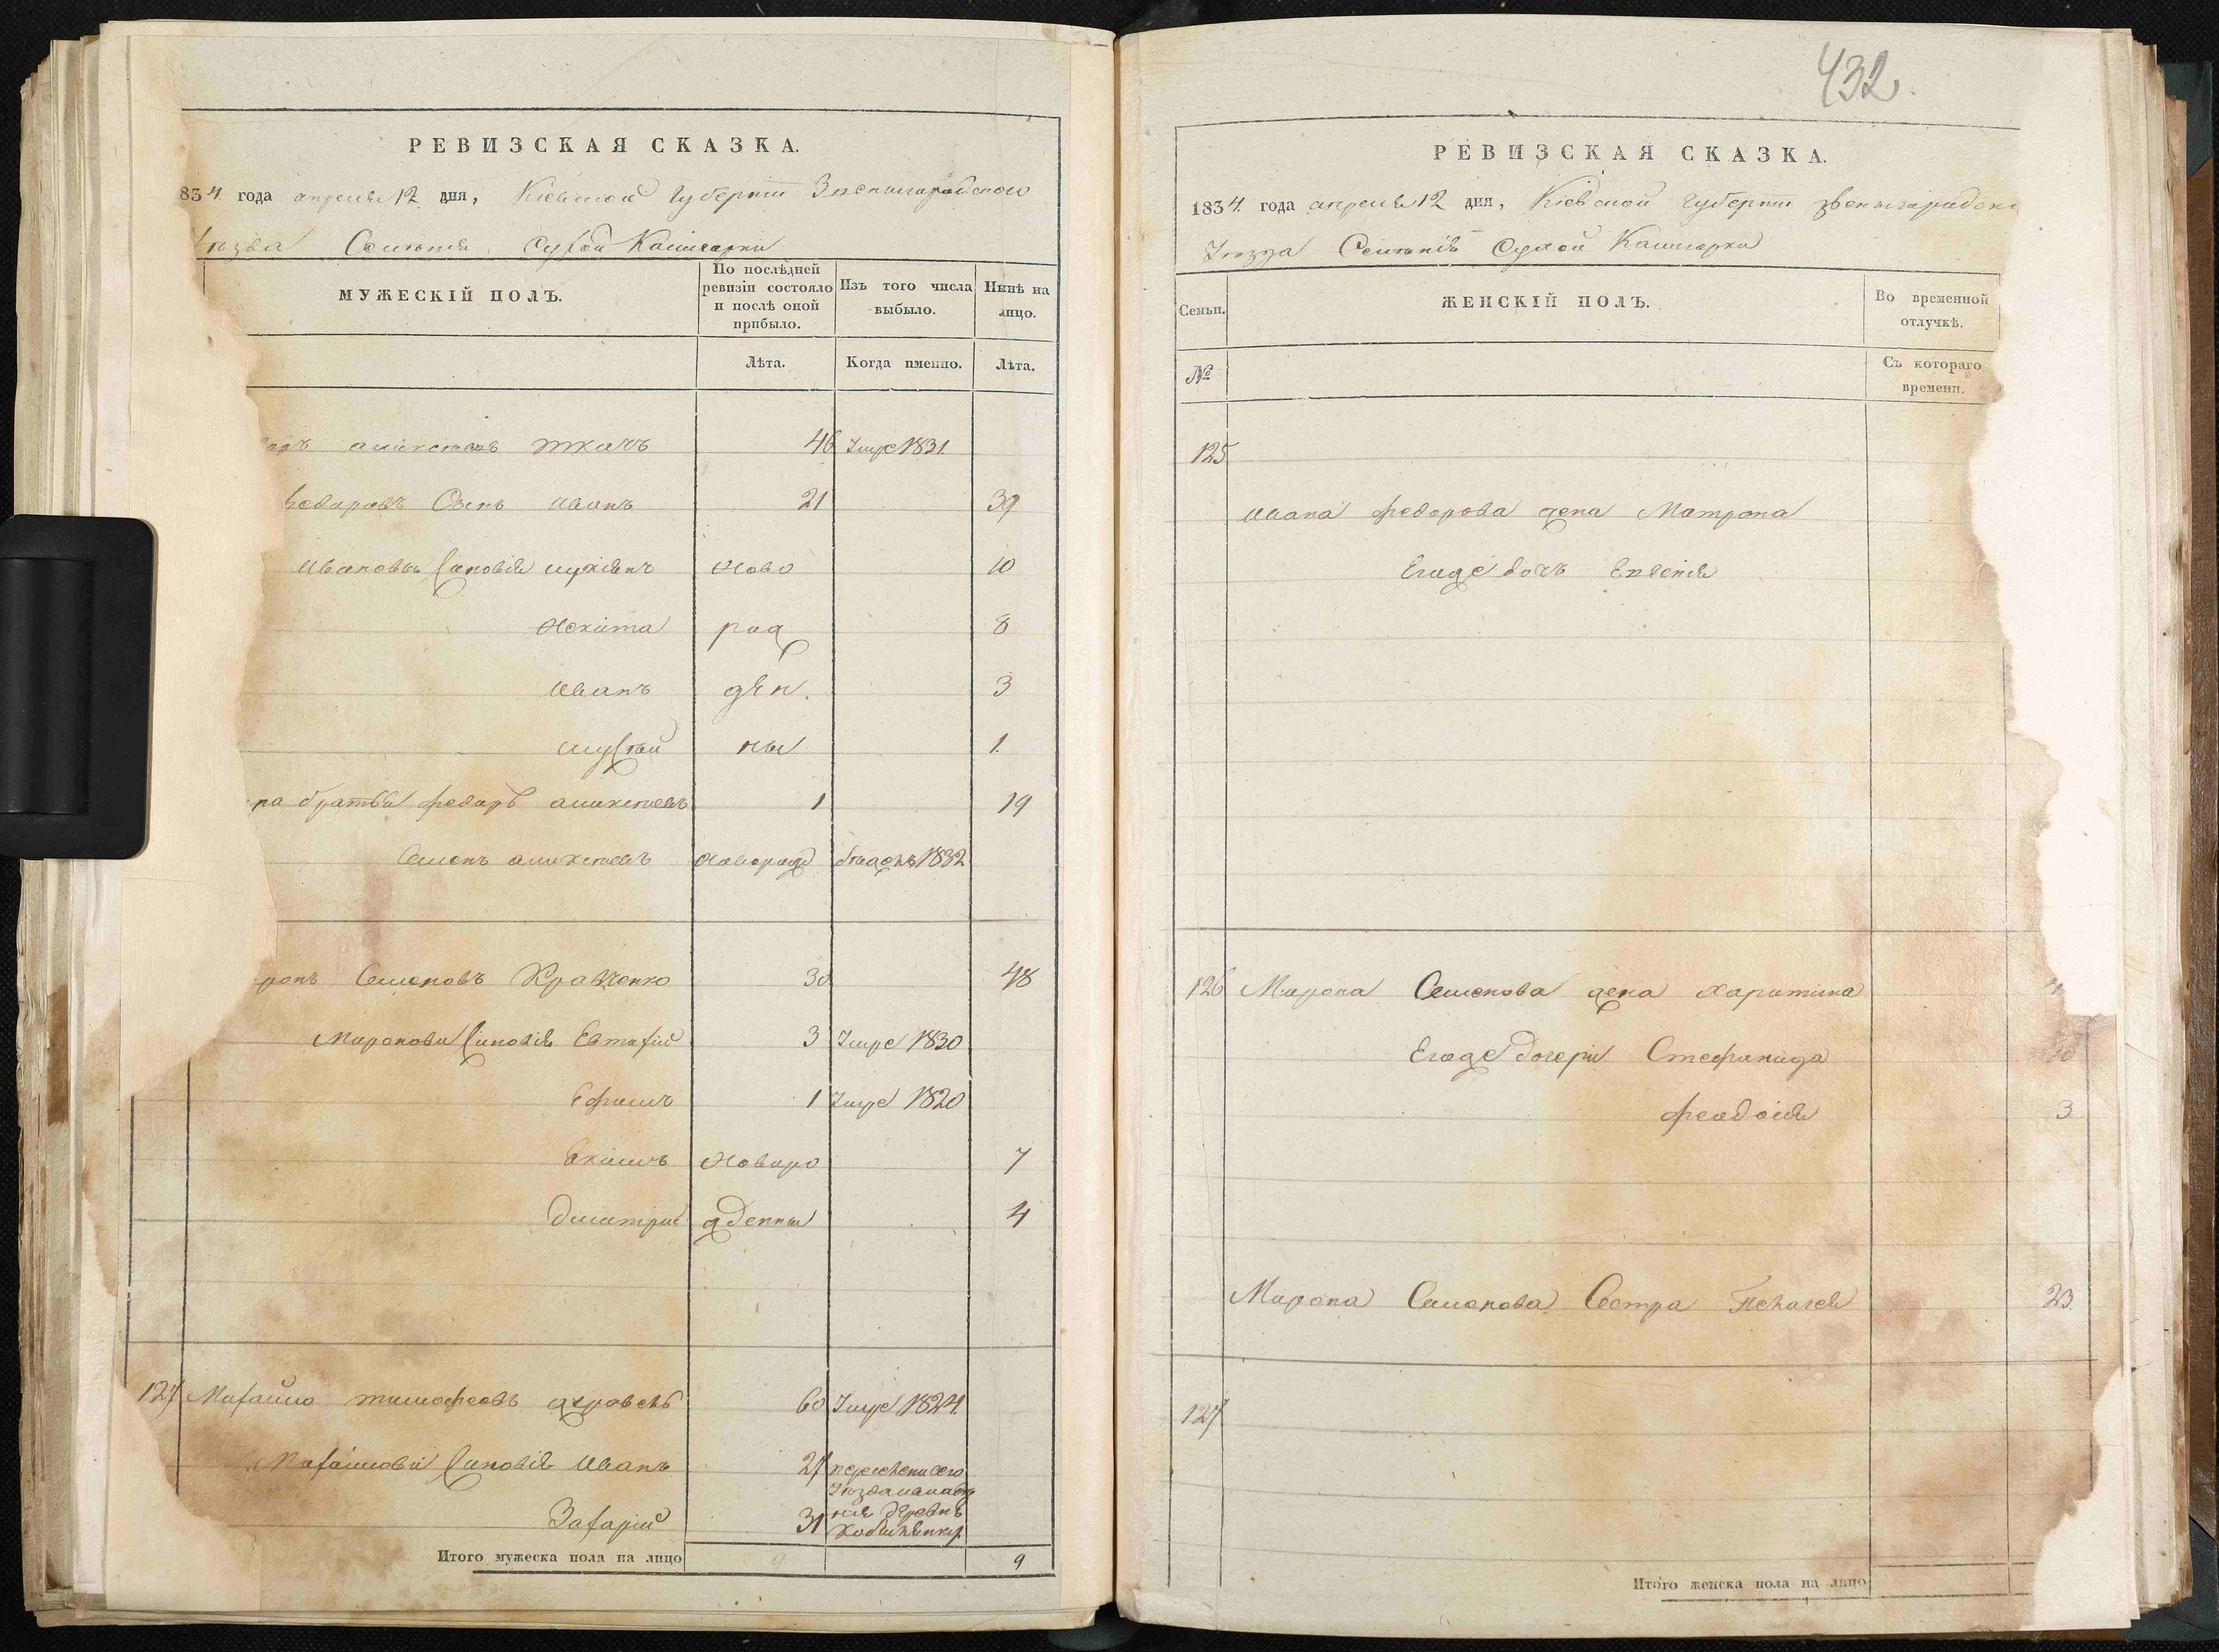 РЕВИЗСКАЯ СКАЗКА.
834 года апреля 12 дня, Кіевской Губерніи Звенигородского
уѣзда Селенія Сухой Калигорки
МУЖЕСКІЙ ПОЛЪ.
По послѣдней ревизіи состояло и послѣ оной прибыло.
Изъ того числа выбыло.
Нынѣ на лицо.
Лѣта.
Когда именно.
Лѣта.
ткачъ 46 Умре 1831
Федоровъ Сынъ Иванъ 21 39
Ивановы Синовія Лукіянъ Ново 10
Некита рож 8
Иванъ ден. 3
ны 1.
братья Федоръ Алексеевъ 1 19
Семенъ АлексеевъНоворожд 1832
Семеновъ Кравченко 30 48
Миронови Синовія Евтафій 3 Умре 1830
Ефимъ 1 Умре 1820
Екимъ Новоро 7
Дмитрій жденны 4
127 Михайло Тимофеевъ 60 Умре 1824
Михайлови Синовія Иванъ 27
Захарій 31
Итого мужеска пола на лицо 9 9
432.
РЕВИЗСКАЯ СКАЗКА.
1834. года апреля 12 дня, Кіевской Губерніи Звенигородско
Уѣзда Селенія Сухой Калигорки
Семьи.
ЖЕНСКІЙ ПОЛЪ.
Во временной отлучкѣ.
№
Съ котораго времени.
125
Ивана Федорова жена Матрона
Егоже дочъ
126 Мирона Семенова жена Харитина
Егоже дочери Стефанида
Феодосія 3
Мирона Семенова Сестра Пелагея 23.
127
Итого женска пола на лицо